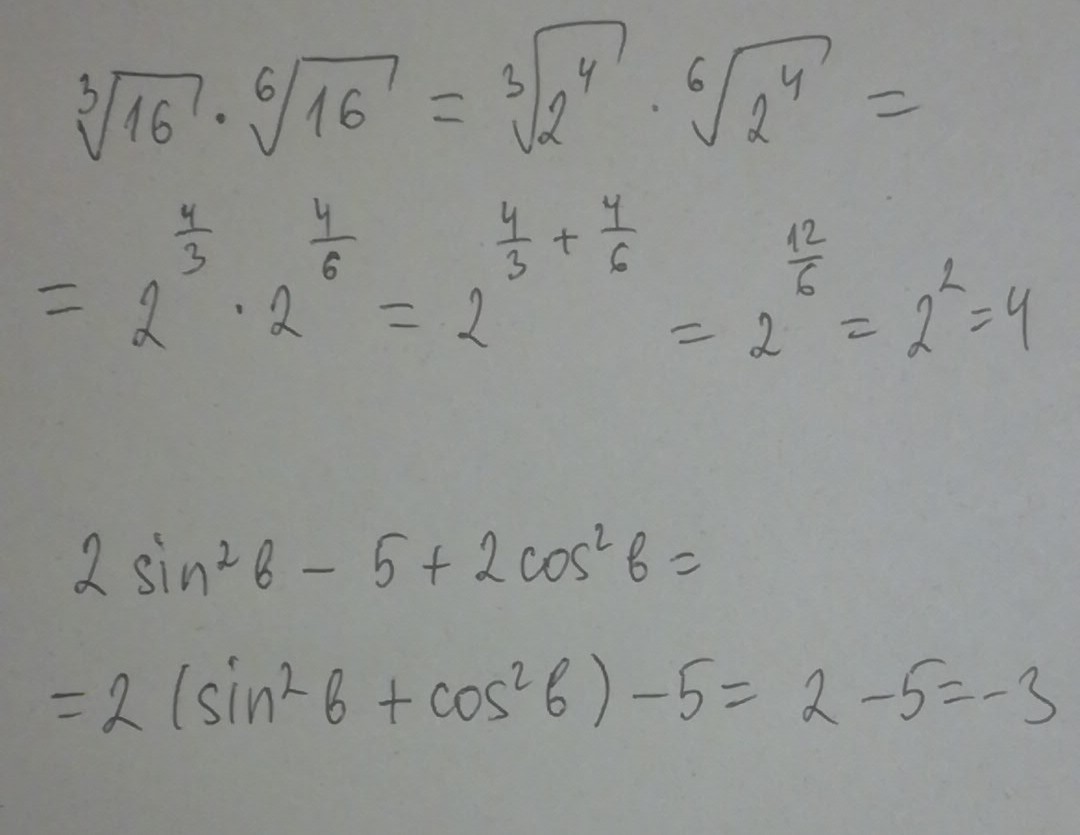 ∛16 · ⁶√16 = ∛2⁴ · ⁶√2⁴ =
= 2^(4/3) · 2^(4/6) = 2^(4/3 + 4/6) = 2^(12/6) = 2² = 4
2 sin² β - 5 + 2 cos² β =
= 2 (sin² β + cos² β) - 5 = 2 - 5 = -3